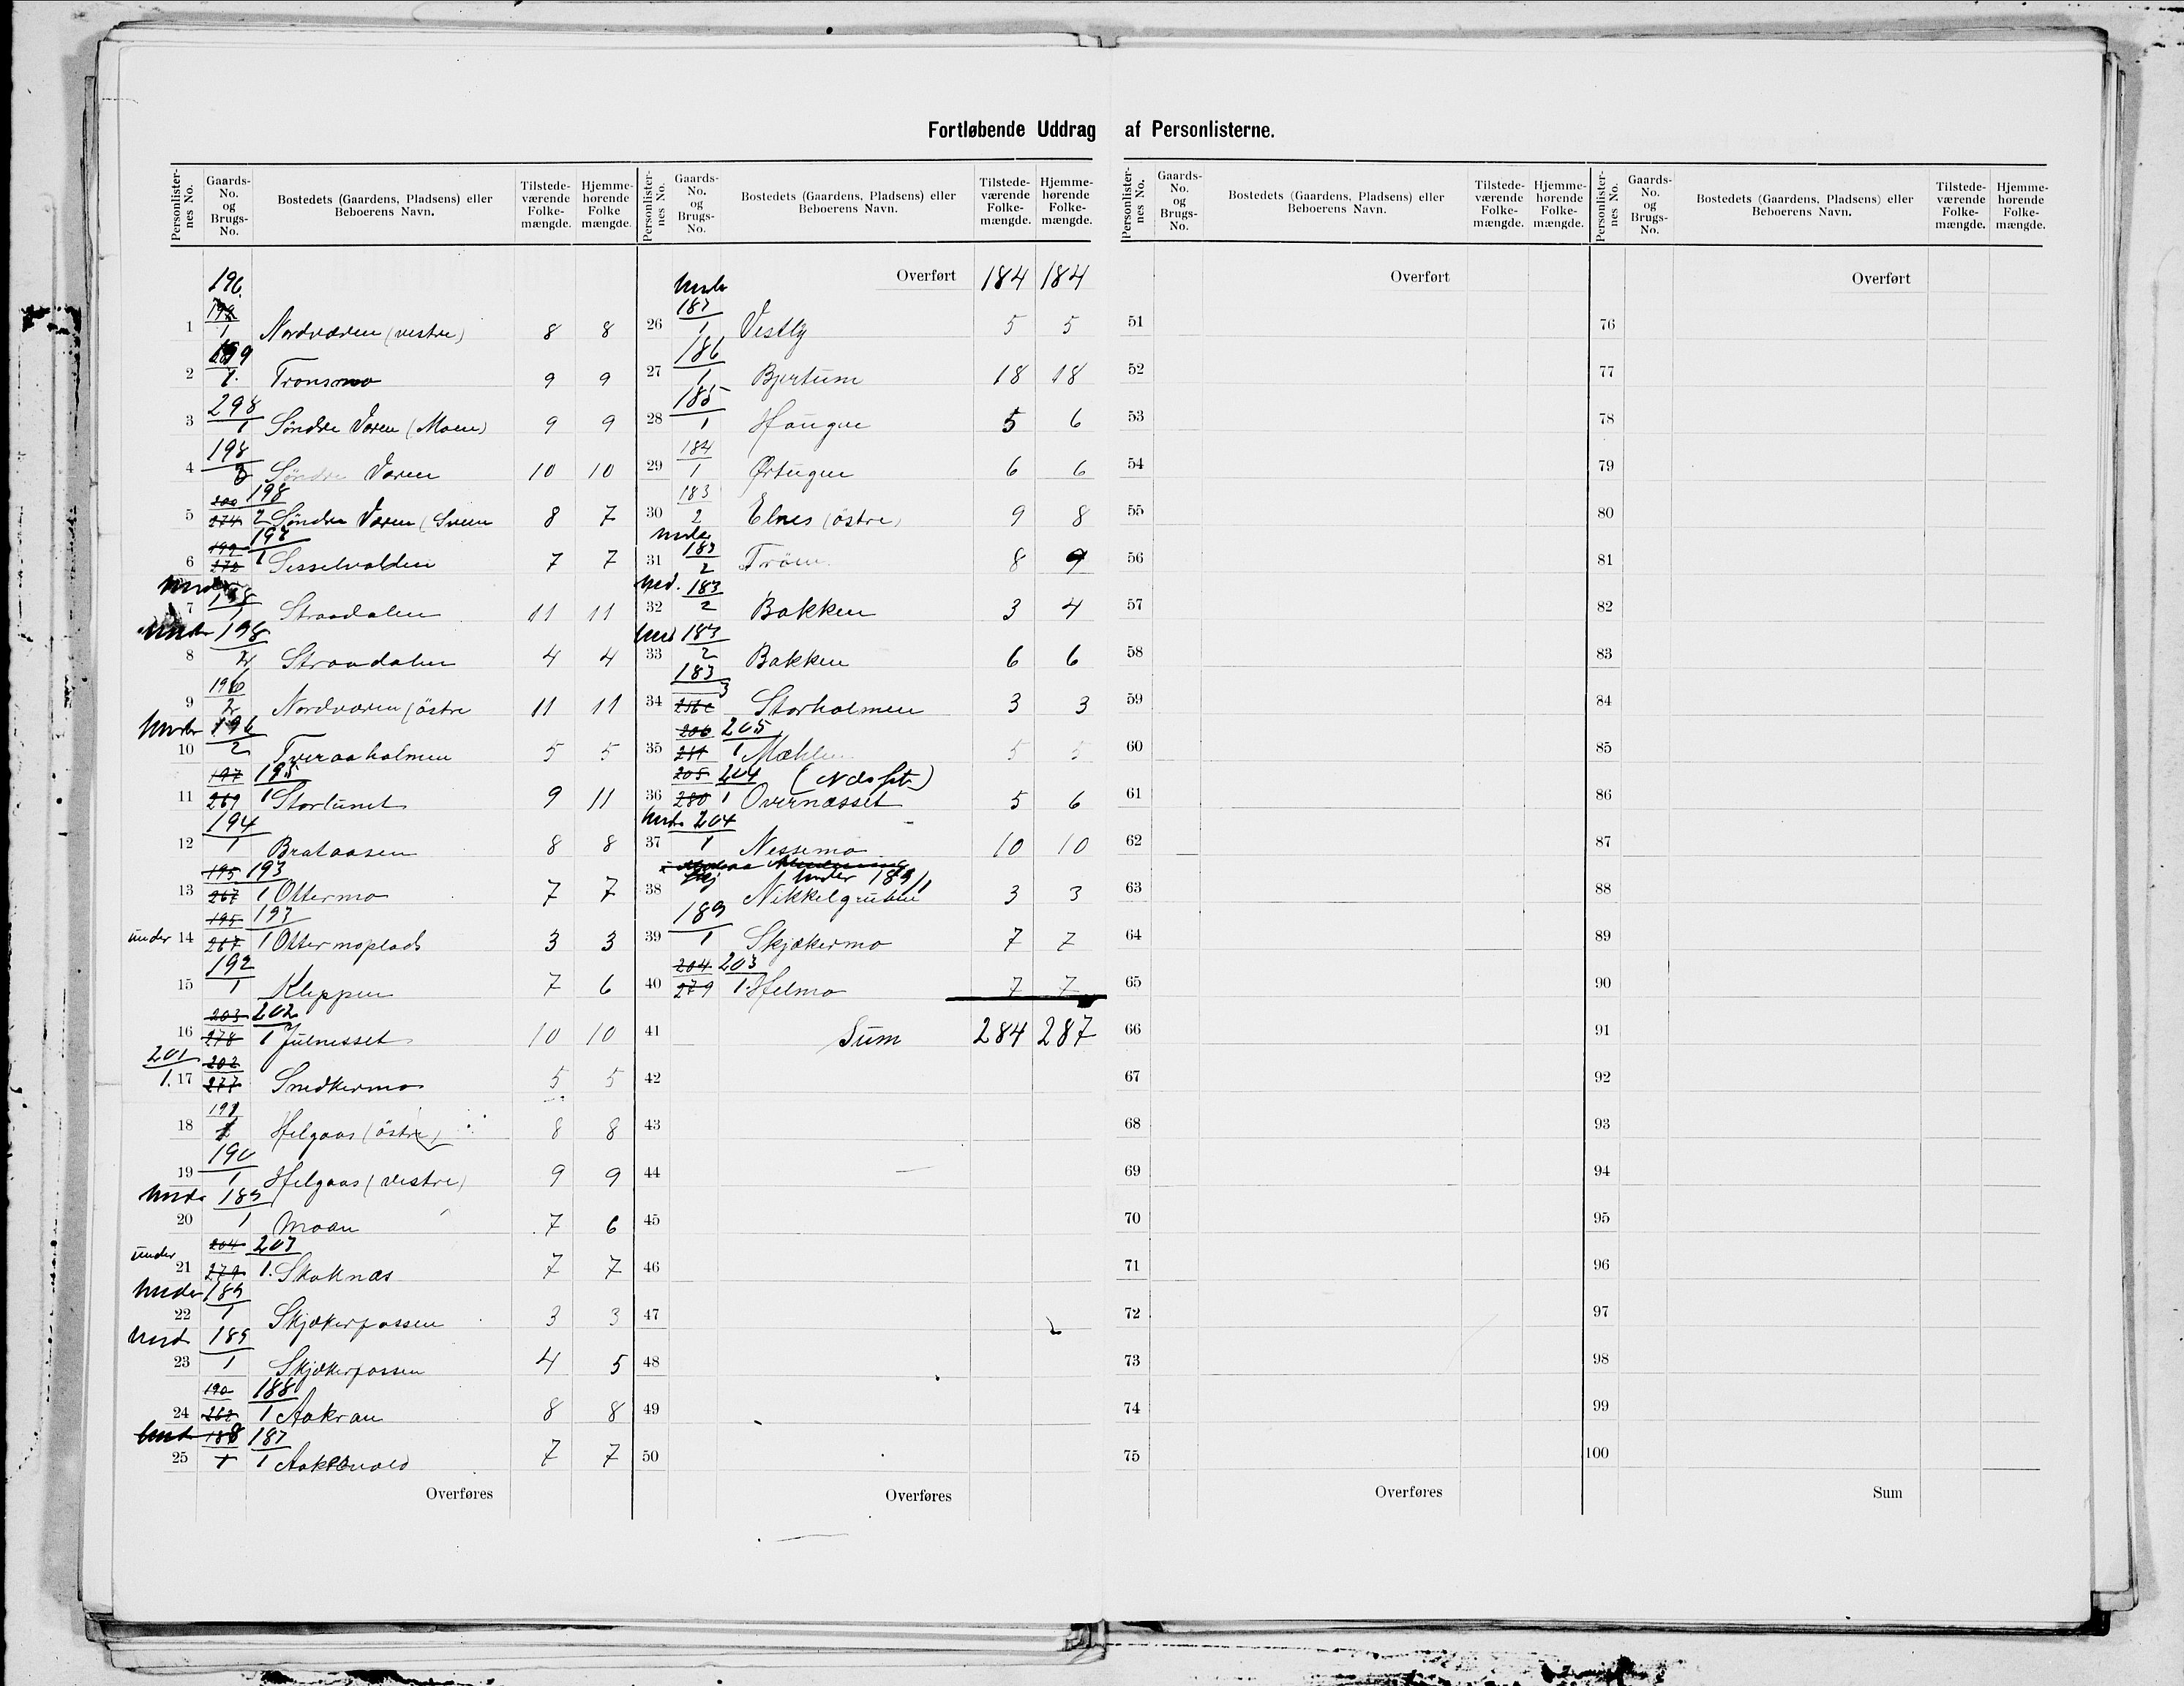 Fortløbende Uddrag af Personlisterne.
Personlister-nes No. Gaards-No. og Brugs-No. Bostedets (Gaardens, Pladsens) eller Beboerens Navn. Tilstede-værende Folke-mængde. Hjemme-hørende Folke mængde.
196
1 1 Nordværen (vestre) 8 8
199
2 1. Tronsmo 9 9
298
3 1 Söndre Væren (Moen) 9 9
198
4 3 Söndre Væren 10 10
200 198
5 274 2 Söndre Væren (Sveen 8 7
199 197
6 272 1 Sisselvolden 7 7
Under 198
7 1 Straadalen 11 11
Under 198
8 2 Straadalen 4 4
196
9 2 Nordværen (östre 11 11
Under 196
10 2 Tveraaholmen 5 5
197 195
11 269 1 Stortunet 9 11
194
12 1 Brataasen 8 8
195 193
13 267 1 Ottermo 7 7
195 193
under 14 267 1 Ottermoplads 3 3
192
15 1 Kleppen 7 6
203 202
16 278 1 Julnesset 10 10
201 202
1. 17 277 Snedkermo 5 5
191
18 1 Helgaas (östre) 8 8
190
19 1 Helgaas (vestre) 9 9
Unde 189
20 1 Moen 7 6
204 203
under 21 279 1. Skaknæs 7 7
Under 189
22 1 Skjækerfossen 3 3
Und 189
23 1 Skjækerfossen 4 5
190 188
24 262 1 Aakran 8 8
Und 188 187
25 1 1 Aakervold 7 7
Overføres
Personlister-nes No. Gaards-No. og Brugs-No. Bostedets (Gaardens, Pladsens) eller Beboerens Navn. Tilstede-værende Folke-mængde. Hjemme-hørende Folke-mængde.
Overført 184 184
Unde
187
26 1 Vestly 5 5
186
27 1 Bjertum 18 18
185
28 1 Haugen 5 6
184
29 1 Örtugen 6 6
183
30 2 Elnes (östre) 9 8
under 183
31 2 Tröen 8 9
Und. 183
32 2 Bakken 3 4
Und 183
33 2 Bakken 6 6
183
34 3 Storholmen 3 3
206 205
35 1 Mæhlen 5 5
205 204
36 280 1 Overnæsset 5 6
Unde 204
37 1 Nessemo 10 10
Under 189/1
38 Nikkelgruben 3 3
189
39 1 Skjækermo 7 7
204 203
40 279 1. Helmo 7 7
41 Sum 284 287
42
43
44
45
46
47
48
49
50
Overføres
Personlister-nes No. Gaards-No. og Brugs-No. Bostedets (Gaardens, Pladsens) eller Beboerens Navn. Tilstede-værende Folke-mængde. Hjemme-hørende Folke-mængde.
Overført
51
52
53
54
55
56
57
58
59
60
61
62
63
64
65
66
67
68
69
70
71
72
73
74
75
Overføres
Personlister-nes No. Gaards-No. og Brugs-No. Bostedets (Gaardens, Pladsens) eller Beboerens Navn. Tilstede-værende Folke-mængde. Hjemme-hørende Folke-mængde.
Overført
76
77
78
79
80
81
82
83
84
85
86
87
88
89
90
91
92
93
94
95
96
97
98
99
100
Sum